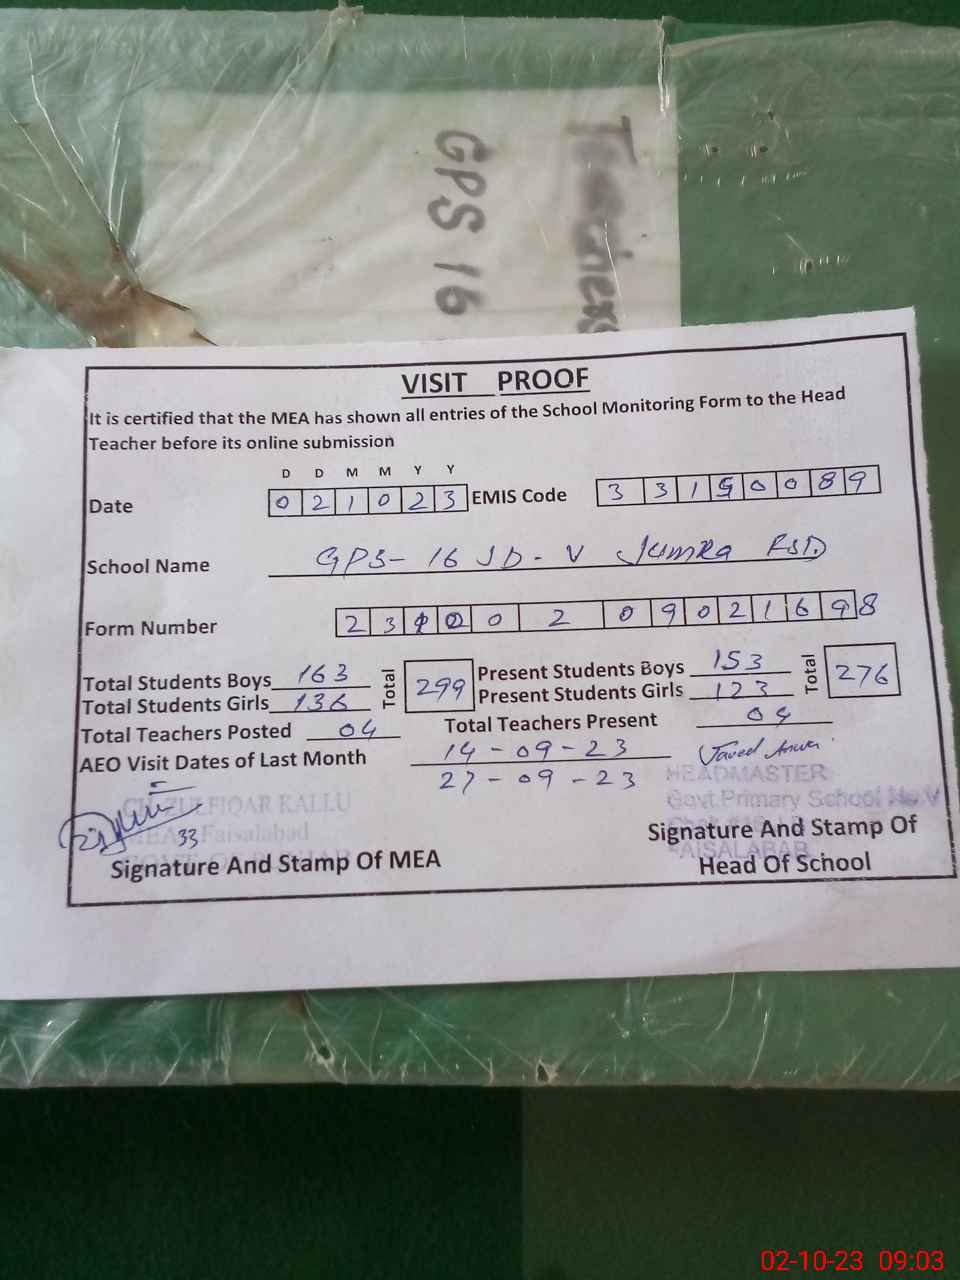 Teachers
GPS 16
VISIT PROOF
It is certified that the MEA has shown all entries of the School Monitoring Form to the Head
Teacher before its online submission
D D M M Y Y
Date 0 2 1 0 2 3 EMIS Code 3 3 1 5 0 0 8 9
School Name GPS- 16 JB-V Jumra FSD.
Form Number 2 3 1 0 0 2 0 9 0 2 1 6 9 8
Total Students Boys 163 Total 299 Present Students Boys 153 Total 276
Total Students Girls 136 Present Students Girls 123
Total Teachers Posted 04 Total Teachers Present 04
AEO Visit Dates of Last Month 14-09-23 Javed Anwer
27-09-23
HEADMASTER
CH ZULFIQAR KALLU Govt. Primary School No V
MEA 33 Faisalabad
FAISALABAD
Signature And Stamp Of MEA
Signature And Stamp Of
Head Of School
02-10-23 09:03